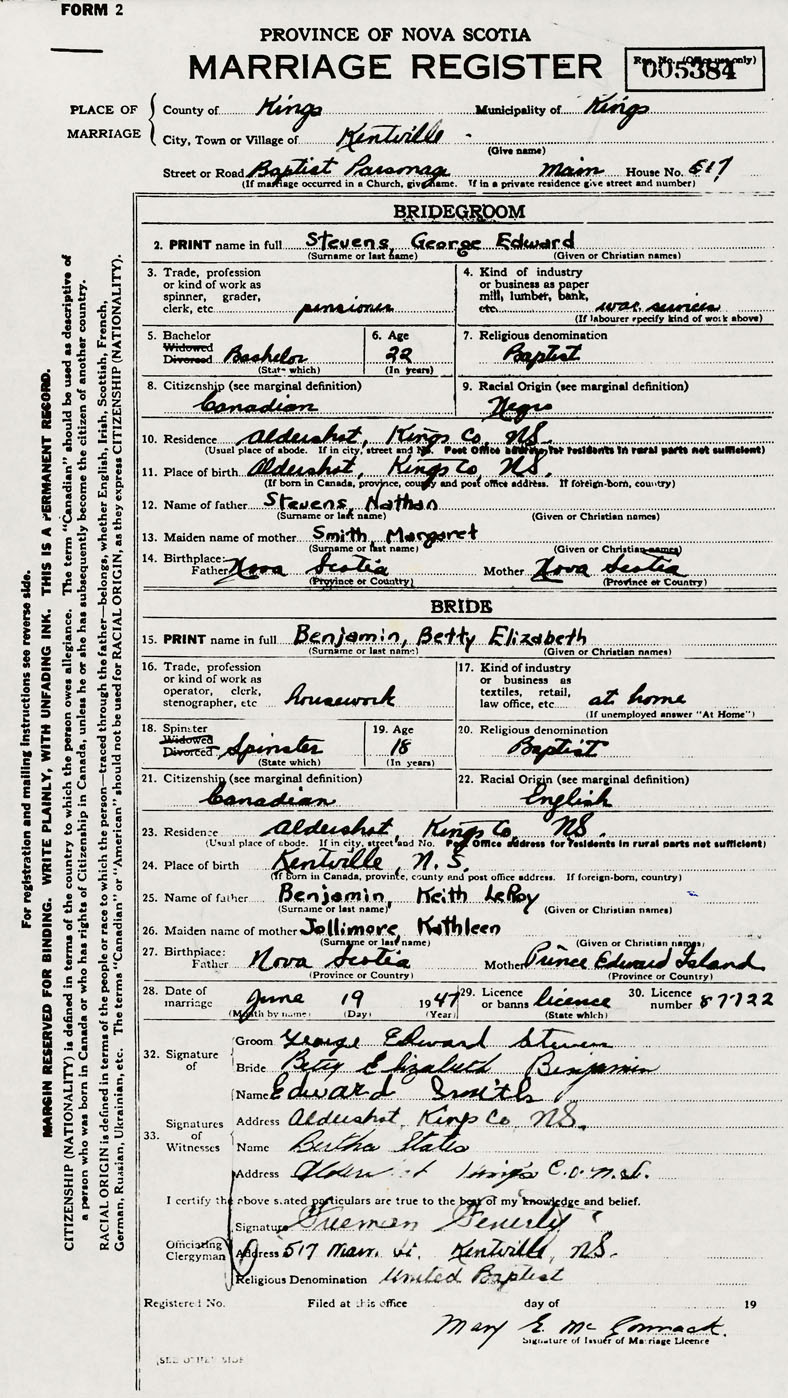 FORM 2
PROVINCE OF NOVA SCOTIA
MARRIAGE REGISTER
Reg. No. (Office use only)
005384
PLACE OF MARRIAGE
County of Kings Municipality of Kings
City, Town or Village of Kentville
(Give name)
Street or Road Baptist Parsonage Main House No. 517
(If marriage occurred in a Church, give name. If in a private residence give street and number)
BRIDEGROOM
2. PRINT name in full Stevens, George Edward
(Surname or last name) (Given or Christian names)
3. Trade, profession or kind of work as spinner, grader, clerk, etc pensioner
4. Kind of industry or business as paper mill, lumber, bank, etc. war services
(If labourer specify kind of work above)
5. Bachelor Widowed Divorced Bachelor
(State which)
6. Age 22
(In years)
7. Religious denomination
Baptist
8. Citizenship (see marginal definition)
Canadian
9. Racial Origin (see marginal definition)
Negro
10. Residence Aldershot, Kings Co, NS.
(Usual place of abode. If in city, street and No. Post Office address for residents in rural parts not sufficient)
11. Place of birth Aldershot, Kings Co, NS.
(If born in Canada, province, county and post office address. If foreign-born, country)
12. Name of father Stevens, Nathan
(Surname or last name) (Given or Christian names)
13. Maiden name of mother Smith, Margaret
(Surname or last name) (Given or Christian names)
14. Birthplace: Father Nova Scotia Mother Nova Scotia
(Province or Country) (Province or Country)
BRIDE
15. PRINT name in full Benjamin, Betty Elizabeth
(Surname or last name) (Given or Christian names)
16. Trade, profession or kind of work as operator, clerk, stenographer, etc housework
17. Kind of industry or business as textiles, retail, law office, etc. at home
(If unemployed answer "At Home")
18. Spinster Widowed Divorced Spinster
(State which)
19. Age 18
(In years)
20. Religious denomination
Baptist
21. Citizenship (see marginal definition)
Canadian
22. Racial Origin (see marginal definition)
English
23. Residence Aldershot, Kings Co, NS.
(Usual place of abode. If in city, street and No. Post Office address for residents in rural parts not sufficient)
24. Place of birth Kentville, N.S.
(If born in Canada, province, county and post office address. If foreign-born, country)
25. Name of father Benjamin, Keith LeRoy
(Surname or last name) (Given or Christian names)
26. Maiden name of mother Jollimore, Kathleen
(Surname or last name) (Given or Christian names)
27. Birthplace: Father Nova Scotia Mother Prince Edward Island
(Province or Country) (Province or Country)
28. Date of marriage June 19 1947
(Month by name) (Day) (Year)
29. Licence or banns licence
(State which)
30. Licence number 87722
32. Signature of
Groom George Edward Stevens
Bride Betty Elizabeth Benjamin
33. Signatures of Witnesses
Name Edward Smith
Address Aldershot, Kings Co, NS.
Name Bertha States
Address Kings Co. N.S.
I certify the above stated particulars are true to the best of my knowledge and belief.
Officiating Clergyman
Signature Freeman Fenerty
Address 517 Main St. Kentville, NS.
Religious Denomination United Baptist
Registered No. Filed at this office day of 19
Mary E. McCormack.
Signature of Issuer of Marriage Licence
(SEE OTHER SIDE
For registration and mailing instructions see reverse side.
MARGIN RESERVED FOR BINDING. WRITE PLAINLY, WITH UNFADING INK. THIS IS A PERMANENT RECORD.
CITIZENSHIP (NATIONALITY) is defined in terms of the country to which the person owes allegiance. The term "Canadian" should be used as descriptive of
a person who was born in Canada or who has rights of Citizenship in Canada, unless he or she has subsequently become the citizen of another country.
RACIAL ORIGIN is defined in terms of the people or race to which the person—traced through the father—belongs, whether English, Irish, Scottish, French,
German, Russian, Ukrainian, etc. The terms "Canadian" or "American" should not be used for RACIAL ORIGIN, as they express CITIZENSHIP (NATIONALITY).